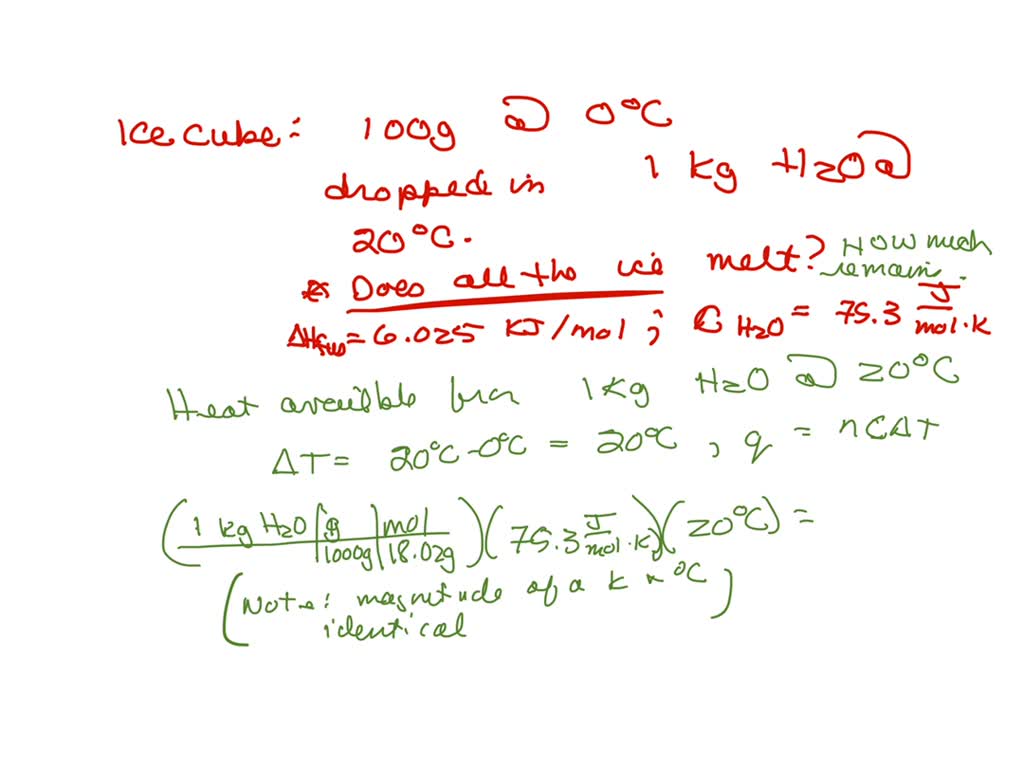 Ice cube: 100g @ 0°C
dropped in 1 kg H2O @
20°C.
* Does all the ice melt? How much
remains.
ΔHfus = 6.025 KJ/mol ; C H2O = 75.3 J/mol·K
Heat availble from 1 kg H2O @ 20°C
ΔT = 20°C-0°C = 20°C , q = nCΔT
(1 kg H2O | g / 1000g | mol / 18.02g)(75.3 J/mol·K)(20°C) =
(Note: magnitude of a K & °C
identical)